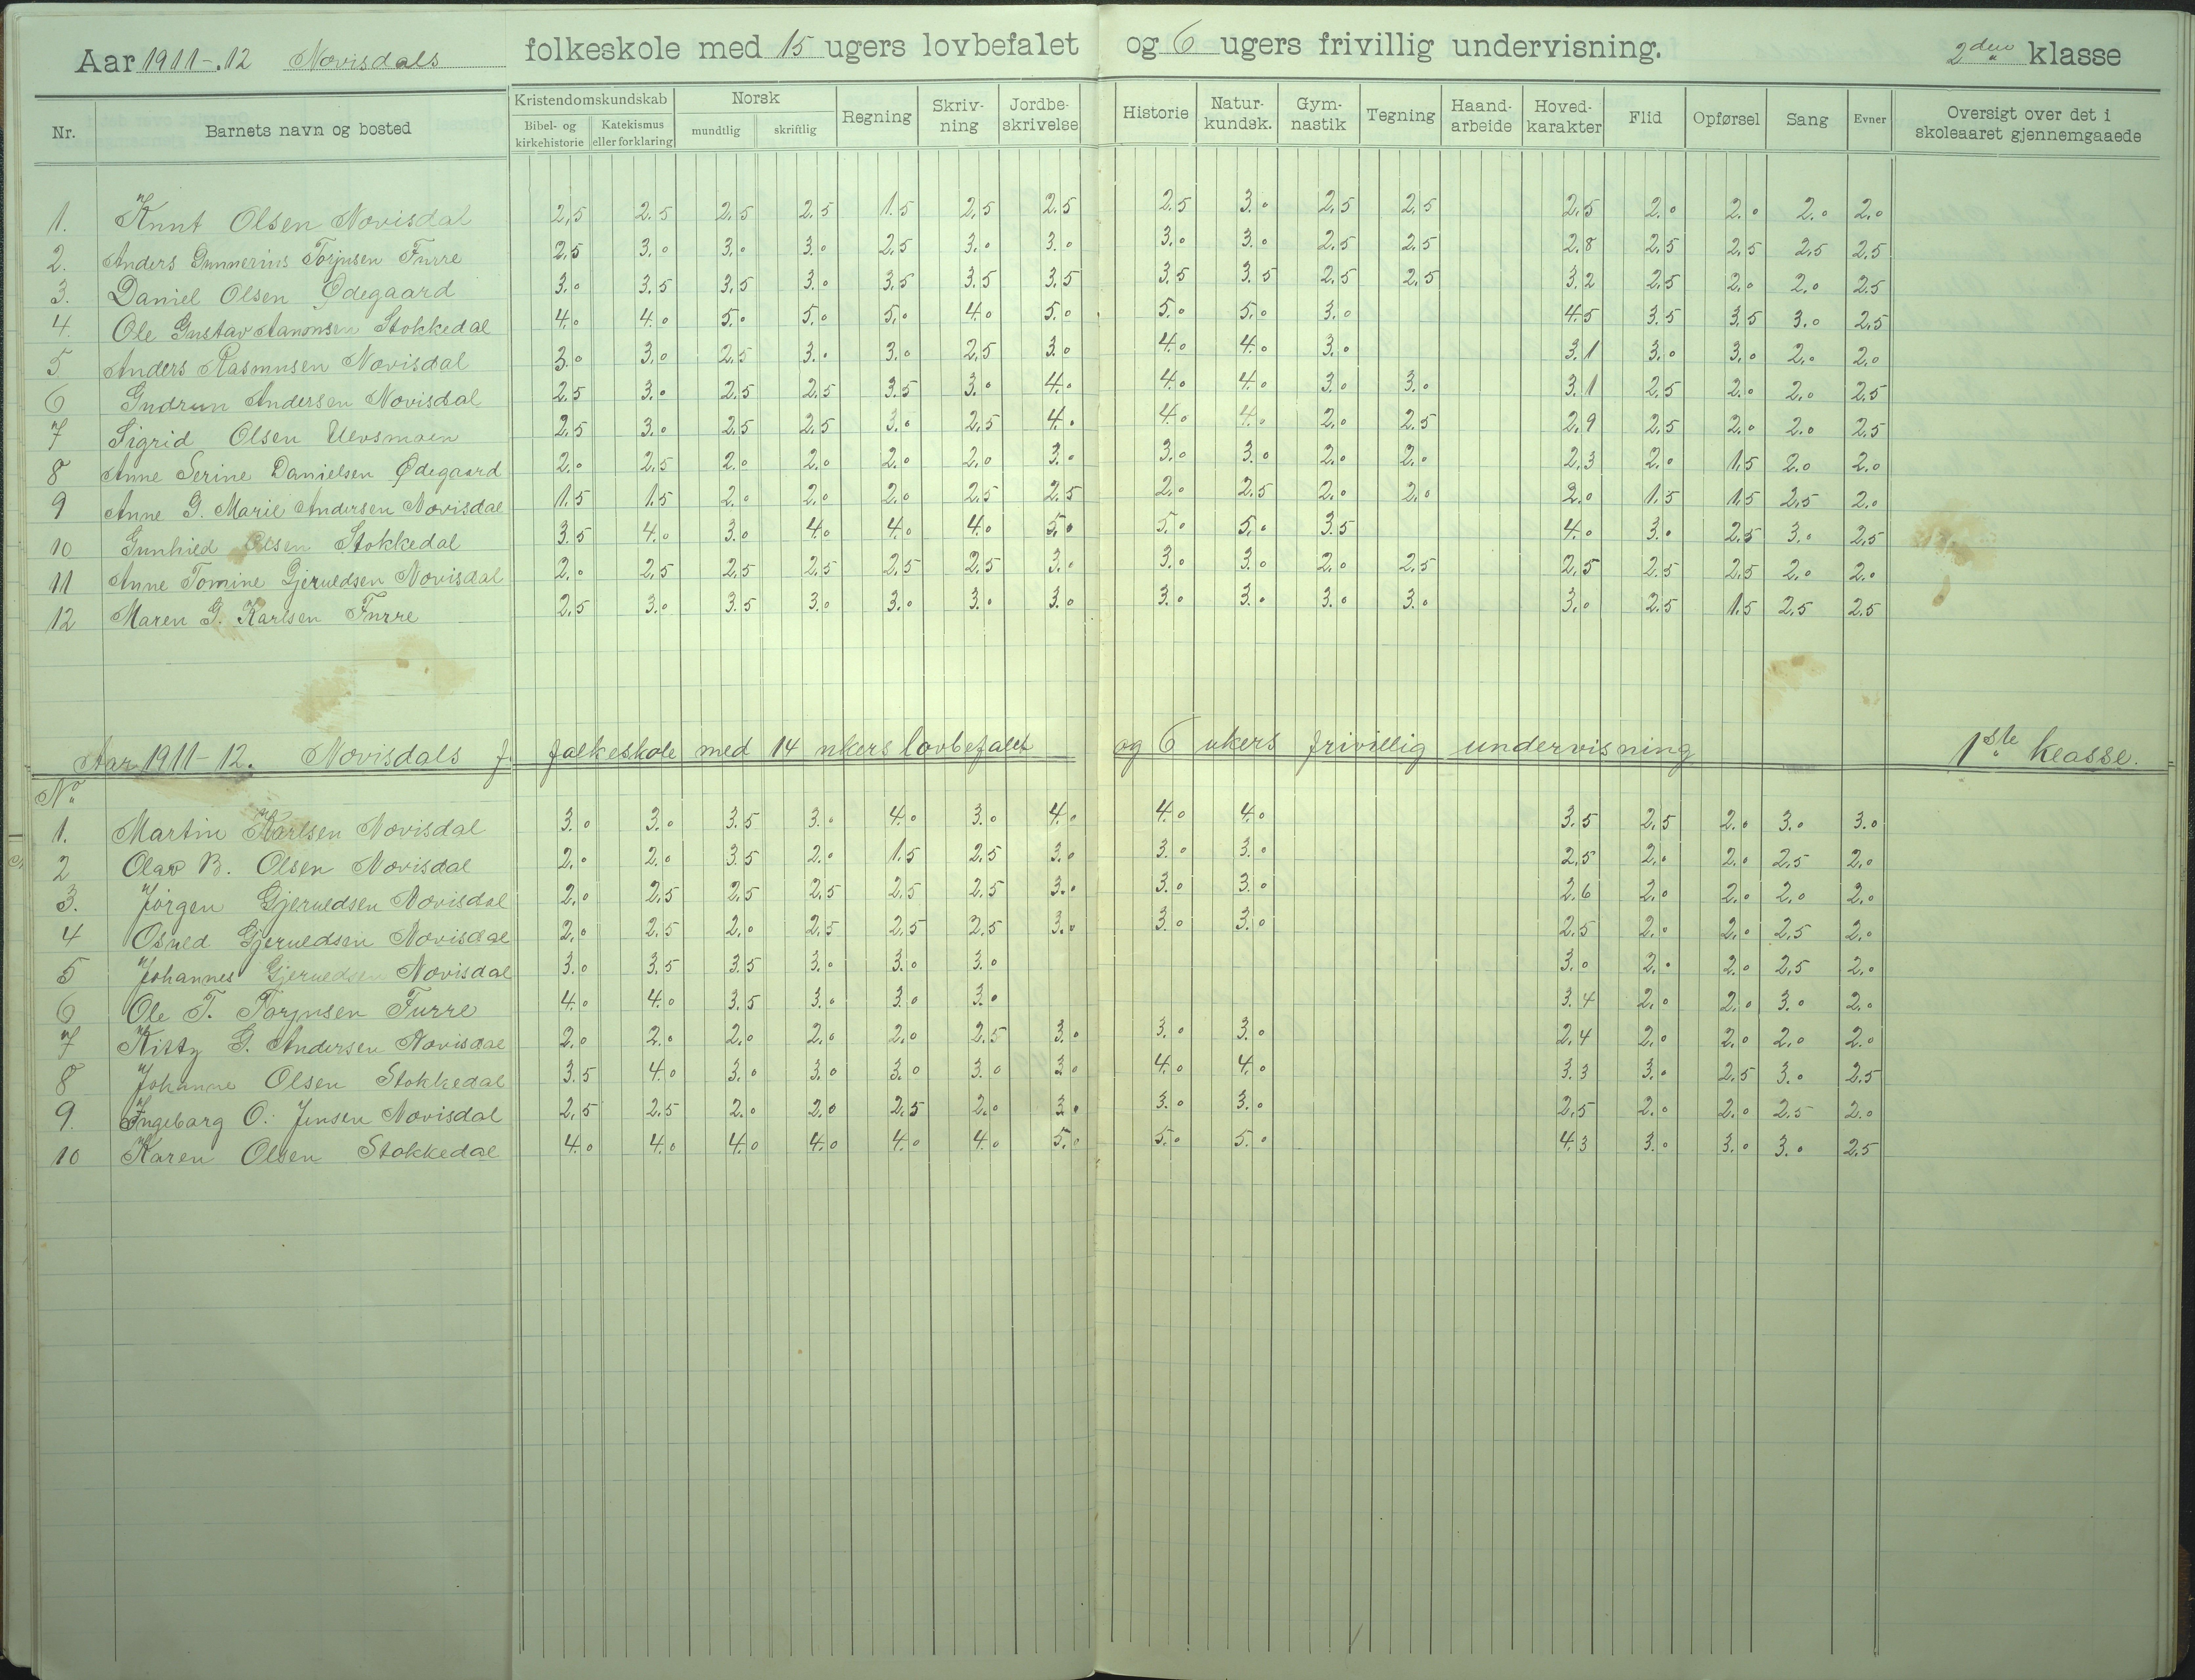 Aar 1911-.12 Novisdals folkeskole med 15 ugers lovbefalet og 6 ugers frivillig undervisning. 2den klasse
Nr. Barnets navn og bosted Kristendomskundskab Norsk Regning Skriv-ning Jordbe-skrivelse Historie Natur-kundsk. Gym-nastik Tegning Haand-arbeide Hoved-karakter Flid Opførsel Sang Evner Oversigt over det i skoleaaret gjennemgaaede
Bibel- og kirkehistorie Katekismus eller forklaring mundtlig skriftlig
1. Knut Olsen Novisdal 2,5 2.5 2,5 2.5 1.5 2,5 2.5 2.5 3.0 2,5 2,5 2,5 2.0 2.0 2.0 2.0
2. Anders Gunnerius Torjusen Furre 2,5 3.0 3.0 3.0 2,5 3.0 3.0 3.0 3.0 2.5 2.5 2.8 2,5 2,5 2,5 2,5
3. Daniel Olsen Ødegaard 3.0 3.5 3,5 3.0 3,5 3.5 3,5 3.5 3.5 2,5 2,5 3.2 2,5 2.0 2.0 2.5
4. Ole Gustav Aanonsen Stokkedal 4.0 4.0 5.0 5.0 5.0 4.0 5.0 5.0 5.0 3.0 4.5 3.5 3,5 3.0 2,5
5 Anders Rasmusen Novisdal 3.0 3.0 2.5 3.0 3.0 2,5 3.0 4.0 4.0 3.0 3.1 3.0 3.0 2.0 2.0
6 Gudrun Andersen Novisdal 2.5 3.0 2.5 2.5 3.5 3.0 4.0 4.0 4.0 3.0 3.0 3.1 2.5 2.0 2.0 2.5
7 Sigrid Olsen Uevsmoen 2,5 3.0 2,5 2,5 3.0 2,5 4.0 4.0 4.0 2.0 2.5 2,9 2,5 2.0 2.0 2,5
8 Anne Serine Danielsen Ødegaard 2.0 2,5 2.0 2.0 2.0 2.0 3.0 3.0 3.0 2.0 2.0 2,3 2.0 1,5 2.0 2.0
9 Anne G. Marie Andersen Novisdal 1.5 1.5 2.0 2.0 2.0 2.5 2.5 2.0 2.5 2.0 2.0 2.0 1.5 1.5 2,5 2.0
10 Gunhild Olsen Stokkedal 3.5 4.0 3.0 4.0 4.0 4.0 5.0 5.0 5.0 3.5 4.0 3.0 2.5 3.0 2,5
11 Anne Tomine Gjeruldsen Novisdal 2.0 2,5 2,5 2,5 2,5 2.5 3.0 3.0 3.0 2.0 2,5 2,5 2.5 2,5 2.0 2.0
12 Maren G. Karlsen Furre 2,5 3.0 3.5 3.0 3.0 3.0 3.0 3.0 3.0 3.0 3.0 3.0 2.5 1.5 2.5 2.5
Aar 1911-12. Novisdals f. folkeskole med 14 ukers lovbefalet og 6 ukers frivillig undervisning 1ste klasse.
No
1. Martin Karlsen Novisdal 3.0 3.0 3.5 3.0 4.0 3.0 4.0 4.0 4.0 3.5 2.5 2.0 3.0 3.0
2 Olav B. Olsen Novisdal 2.0 2.0 3.5 2.0 1.5 2.5 3.0 3.0 3.0 2,5 2.0 2.0 2,5 2.0
3. Jørgen Gjeruldsen Novisdal 2.0 2,5 2,5 2,5 2.5 2,5 3.0 3.0 3.0 2.6 2.0 2.0 2.0 2.0
4 Osuld Gjeruldsen Novisdal 2.0 2.5 2.0 2,5 2.5 2.5 3.0 3.0 3.0 2.5 2.0 2.0 2,5 2.0
5 Johannes Gjeruldsen Novisdal 3.0 3.5 3.5 3.0 3.0 3.0 3.0 2.0 2.0 2,5 2.0
6 Ole T. Torjusen Furre 4.0 4.0 3.5 3.0 3.0 3.0 3.4 2.0 2.0 3.0 2.0
7 Kitty G. Andersen Novisdal 2.0 2.0 2.0 2.0 2.0 2.5 3.0 3.0 3.0 2,4 2.0 2.0 2.0 2.0
8 Johanne Olsen Stokkedal 3.5 4.0 3.0 3.0 3.0 3.0 3.0 4.0 4.0 3.3 3.0 2,5 3.0 2.5
9. Ingeborg O. Jensen Novisdal 2,5 2,5 2.0 2.0 2.5 2.0 3.0 3.0 3.0 2,5 2.0 2.0 2.5 2.0
10 Karen Olsen Stokkedal 4.0 4.0 4.0 4.0 4.0 4.0 5.0 5.0 5.0 4.3 3.0 3.0 3.0 2.5